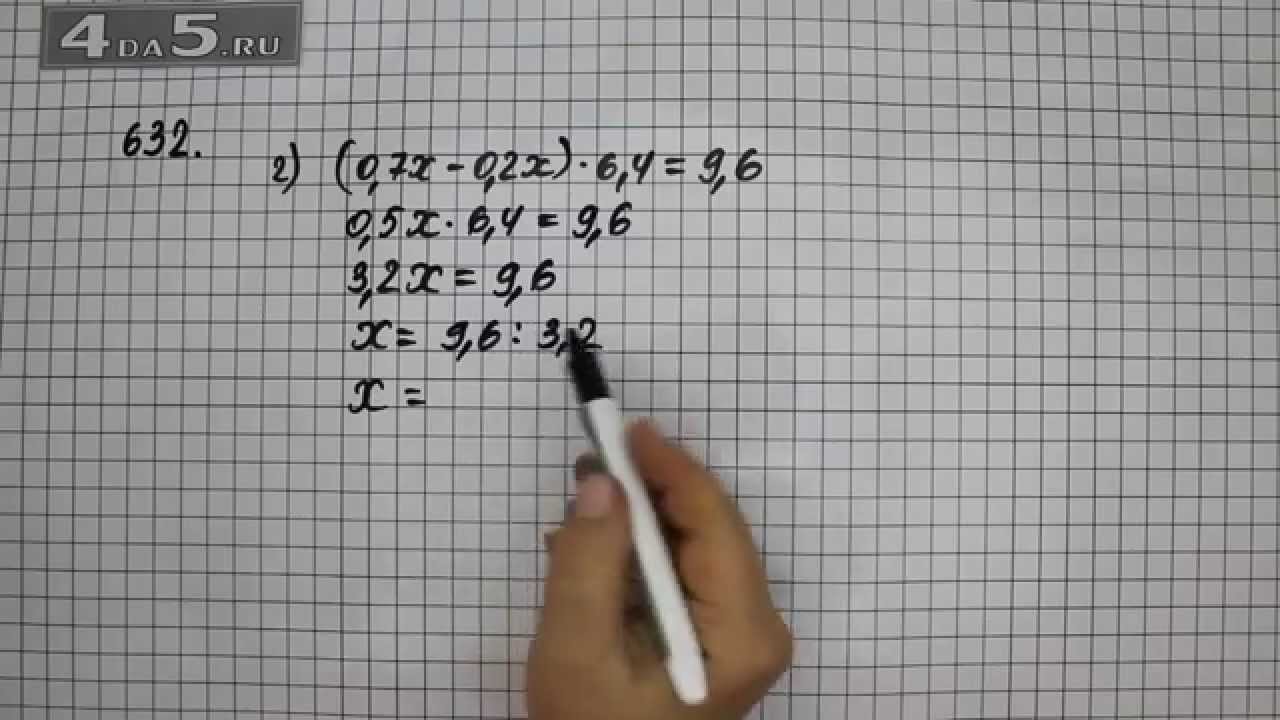 4DA5.RU
632.
г) (0,7x - 0,2x) · 6,4 = 9,6
0,5x · 6,4 = 9,6
3,2x = 9,6
x = 9,6 : 3,2
x =